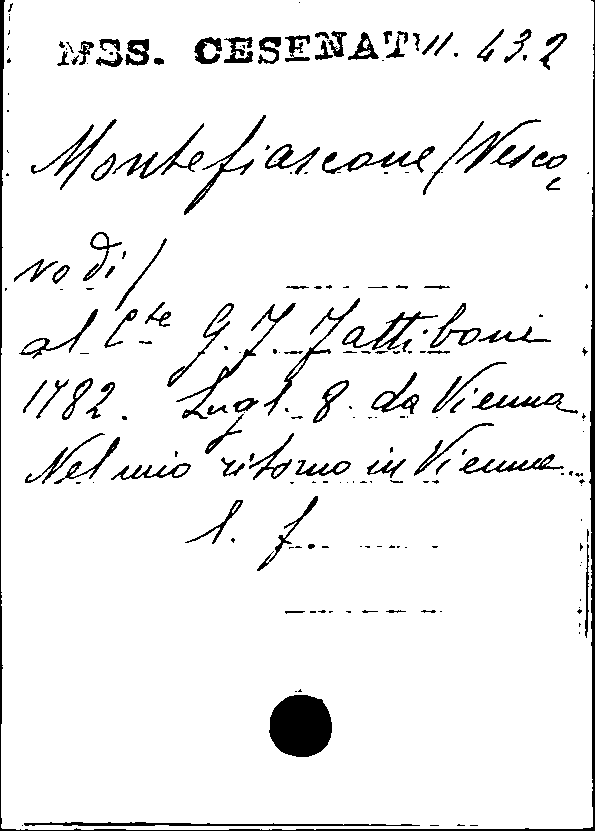 MSS. CESENAT. 11. 43.2
Montefiascone (Vesco-
vo di)
al Cte G. F. Fattiboni
1782. Lugl. 8. da Vienna
Nel mio ritorno in Vienna...
l. f.